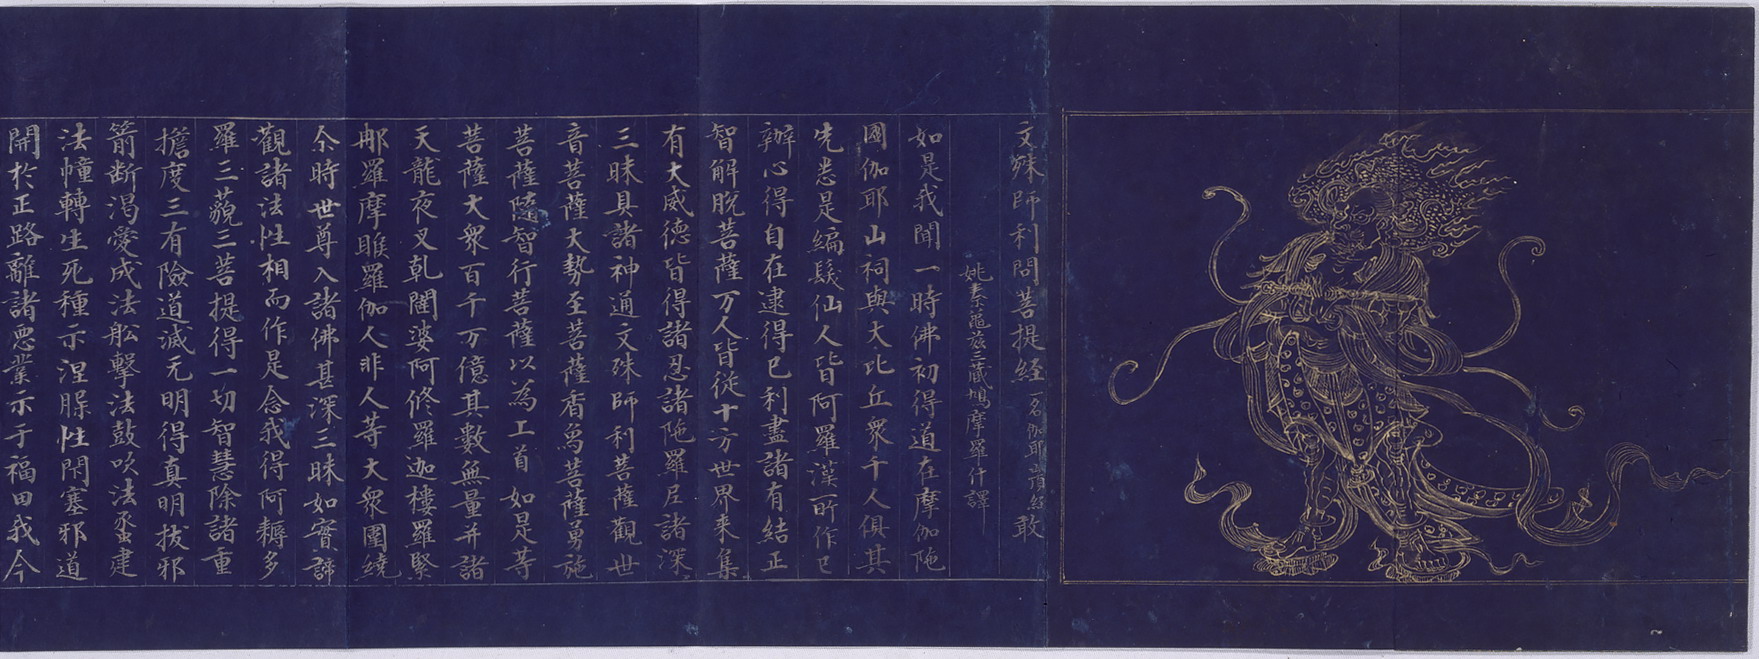 文殊師利問菩提經一名伽耶頂經 敢
姚秦龜茲三藏鳩摩羅什譯
如是我聞一時佛初得道在摩伽陁
國伽耶山祠與大比丘衆千人俱其
先悉是編髮仙人皆阿羅漢所作已
辦心得自在逮得已利盡諸有結正
智解脫菩薩万人皆從十方世界來集
有大威德皆得諸忍諸陁羅尼諸深
三昧具諸神通文殊師利菩薩觀世
音菩薩大勢至菩薩香象菩薩勇施
菩薩隨智行菩薩以為上首如是等
菩薩大衆百千万億其數無量并諸
天龍夜叉乹闥婆阿修羅迦樓羅緊
那羅摩睺羅伽人非人等大衆圍繞
尒時世尊入諸佛甚深三昧如實諦
觀諸法性相而作是念我得阿耨多
羅三藐三菩提得一切智慧除諸重
擔度三有險道滅无明得真明拔邪
箭斷渴愛成法舩擊法鼓吹法䗍建
法幢轉生死種示涅槃性閇塞邪道
開於正路離諸惡業示于福田我今